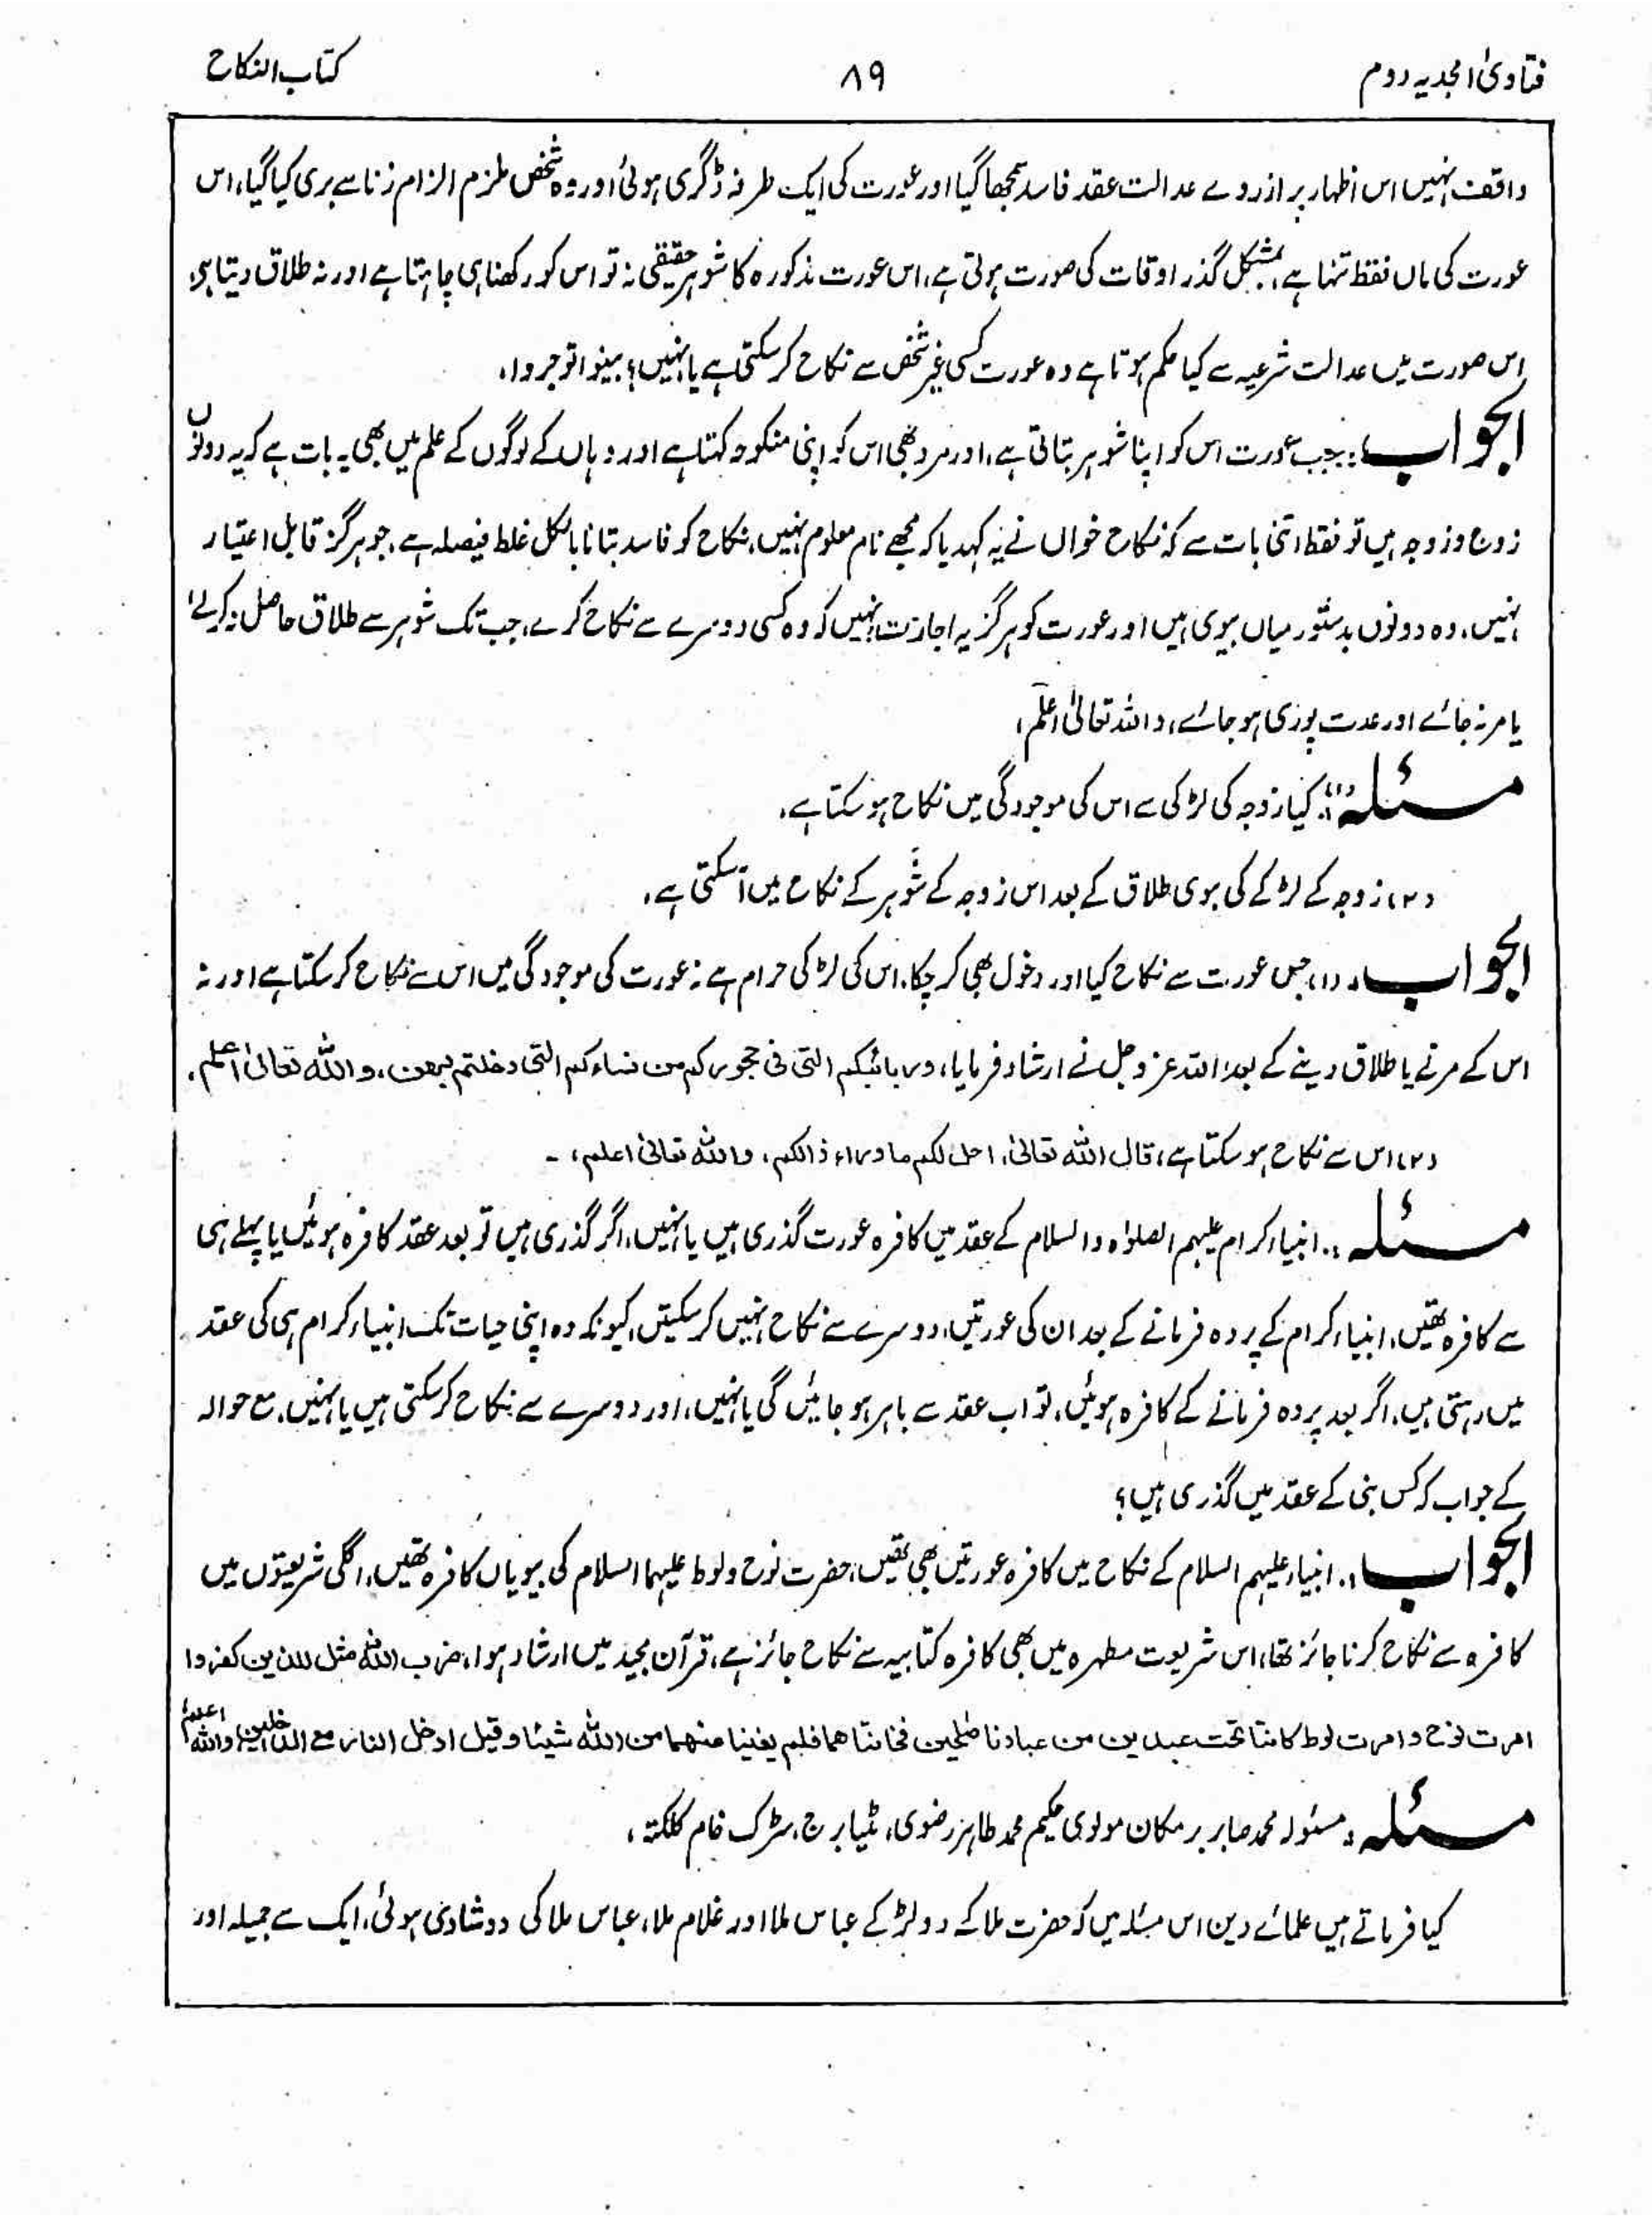 فتاویٰ امجدیہ دوم ۸۹ کتاب النکاح
واقف نہیں اس اظہار پر ازروے عدالت عقد فاسد سمجھا گیا اور عورت کی ایک طرفہ ڈگری ہوئی اور وہ شخص ملزم الزام زنا سے بری کیا گیا، اس
عورت کی ماں فقط تنہا ہے، بمشکل گذر اوقات کی صورت ہوتی ہے، اس عورت مذکورہ کا شوہر حقیقی نہ تو اس کو رکھنا ہی چاہتا ہے اور نہ طلاق دیتا ہی،
اس صورت میں عدالت شرعیہ سے کیا حکم ہوتا ہے وہ عورت کسی غیر شخص سے نکاح کر سکتی ہے یا نہیں؟ بینوا توجروا،
الجواب :۔ جب عورت اس کو اپنا شوہر بتاتی ہے، اور مرد بھی اس کو اپنی منکوحہ کہتا ہے اور وہاں کے لوگوں کے علم میں بھی یہ بات ہے کہ یہ دونوں
زوج و زوجہ ہیں تو فقط اتنی بات سے کہ نکاح خواں نے یہ کہدیا کہ مجھے نام معلوم نہیں، نکاح کو فاسد بتانا بالکل غلط فیصلہ ہے، جو ہرگز قابل اعتبار
نہیں، وہ دونوں بدستور میاں بیوی ہیں اور عورت کو ہرگز یہ اجازت نہیں کہ وہ کسی دوسرے سے نکاح کرے، جب تک شوہر سے طلاق حاصل نہ کرلے،
یا مر نہ جائے اور عدت پوری ہو جائے، واللہ تعالیٰ اعلم،
مسئلہ (۱) :۔ کیا زوجہ کی لڑکی سے اس کی موجودگی میں نکاح ہو سکتا ہے،
(۲) زوجہ کے لڑکے کی بیوی طلاق کے بعد اس زوجہ کے شوہر کے نکاح میں آسکتی ہے،
الجواب :۔ (۱) جس عورت سے نکاح کیا اور دخول بھی کر چکا، اس کی لڑکی حرام ہے نہ عورت کی موجودگی میں اس سے نکاح کر سکتا ہے اور نہ
اس کے مرنے یا طلاق دینے کے بعد، اللہ عزوجل نے ارشاد فرمایا، وربائبکم التی فی حجورکم من نساءکم التی دخلتم بھن، واللہ تعالیٰ اعلم،
(۲) اس سے نکاح ہو سکتا ہے، قال اللہ تعالیٰ، احل لکم ما وراء ذالکم، واللہ تعالیٰ اعلم، ۔
مسئلہ :۔ انبیاء کرام علیہم الصلوٰہ والسلام کے عقد میں کافرہ عورت گذری ہیں یا نہیں، اگر گذری ہیں تو بعد عقد کافرہ ہوئیں یا پہلے ہی
سے کافرہ تھیں، انبیاء کرام کے پردہ فرمانے کے بعد ان کی عورتیں، دوسرے سے نکاح نہیں کر سکتیں، کیونکہ وہ اپنی حیات تک انبیاء کرام ہی کی عقد
میں رہتی ہیں، اگر بعد پردہ فرمانے کے کافرہ ہوئیں، تو اب عقد سے باہر ہو جائیں گی یا نہیں، اور دوسرے سے نکاح کر سکتی ہیں یا نہیں، مع حوالہ
کے جواب کہ کس نبی کے عقد میں گذری ہیں؟
الجواب :۔ انبیاء علیہم السلام کے نکاح میں کافرہ عورتیں بھی تھیں، حضرت نوح و لوط علیہما السلام کی بیویاں کافرہ تھیں، اگلی شریعتوں میں
کافرہ سے نکاح کرنا جائز تھا، اس شریعت مطہرہ میں بھی کافرہ کتابیہ سے نکاح جائز ہے، قرآن مجید میں ارشاد ہوا، ضرب اللہ مثل للذین کفروا
امرت نوح و امرت لوط کانتا تحت عبدین من عبادنا صٰلحین فخانتاھما فلم یغنیا عنھما من اللہ شیئا و قیل ادخل النار مع الداخلین، واللہ اعلم
مسئلہ :۔ مسئولہ محمد صابر بر مکان مولوی حکیم محمد طاہر رضوی، مٹیا برج، سڑک خام کلکتہ،
کیا فرماتے ہیں علمائے دین اس مسئلہ میں کہ حضرت ملا کے دو لڑکے عباس ملا اور غلام ملا، عباس ملا کی دو شادی ہوئی، ایک سے جمیلہ اور